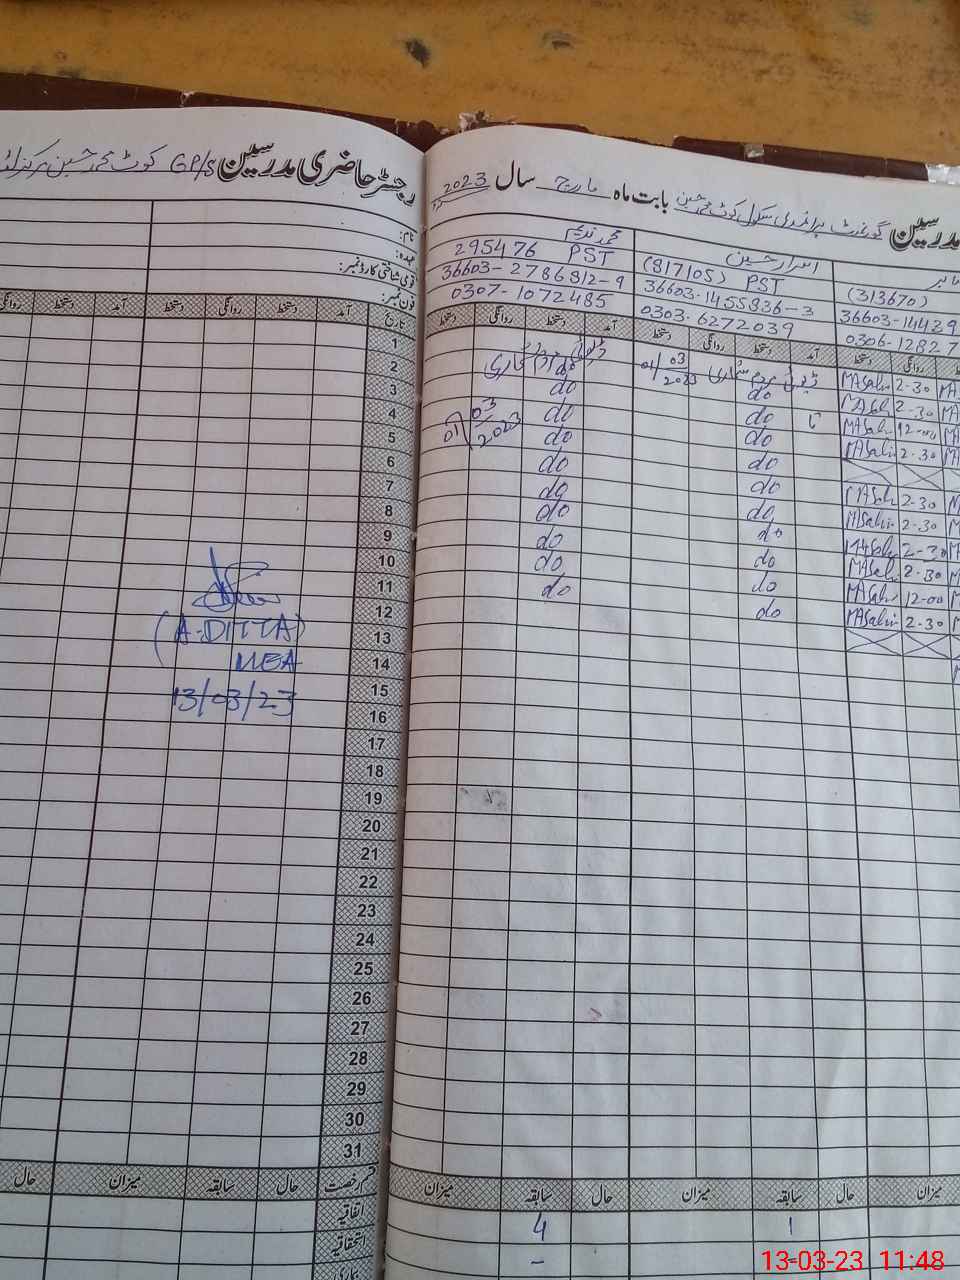 رجسٹر حاضری مدرسین GP/S کوٹ محمد حسین مرکز
نام:
عہدہ:
قومی شناختی کارڈ نمبر:
فون نمبر:
تاریخ آمد دستخط روانگی دستخط آمد دستخط روانگی
1
2
3
4
5
6
7
8
9
10
11
12
13
14
15
16
17
18
19
20
21
22
23
24
25
26
27
28
29
30
31
(A-DITTA)
MEA
13/03/23
قسم رخصت حال سابقہ میزان حال
اتفاقیہ
استحقاقیہ
بیماری
مدرسین گورنمنٹ پرائمری سکول کوٹ محمد حسین بابت ماہ مارچ سال 2023
(313670)
36603-14439
0306-12827
اسرار حسین
(817105) PST
36603-1455836-3
0303-6272039
محمد ندیم
295476 PST
36603-2786812-9
0307-1072485
روانگی دستخط آمد دستخط روانگی دستخط آمد دستخط روانگی دستخط
MASalir 2-30
MASalir 2-30
MASalir 12-00
MASalir 2-30
MASalir 2-30
MASalir 2-30
MASalir 2-30
MASalir 2-30
MASalir 12-00
MASalir 2-30
ڈیوٹی مردم شماری 01/03/2023
تا
do
do
do
do
do
do
do
do
do
do
ڈیوٹی مردم شماری
01/03/2023
do
do
do
do
do
do
do
do
do
do
میزان حال سابقہ میزان حال سابقہ میزان
1
4
-
13-03-23 11:48